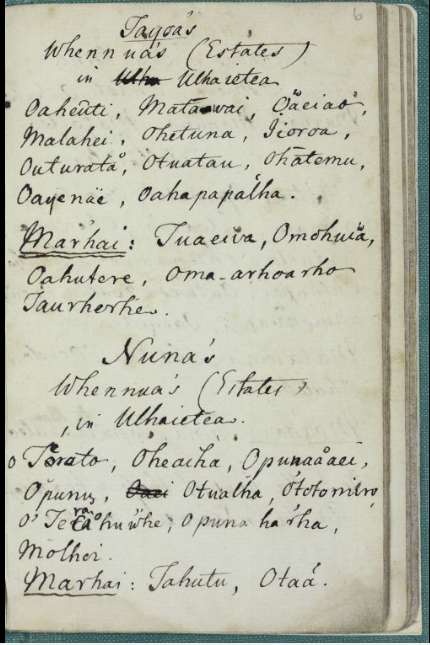 6
Tayoa's
Whennua's (Estates)
in Ulhaietea
Oaheuti, Matavai, Oaeiao,
Malahei, Ohetuna, Iioroa,
Outurata, Otuatau, Ohatemu,
Oayenae, Oahapapalha.
Marhai: Tuaeiva, Omohuia,
Oahutere, Oma-arhoarho
Taurherhe.
Nuna's
Whennua's (Estates)
in Ulhaietea.
o Torato, Oheaiha, Opunaaaei,
Opunu, Otualha,
Opuna harha,
Molhoi.
Marhai: Tahutu, Otaa.